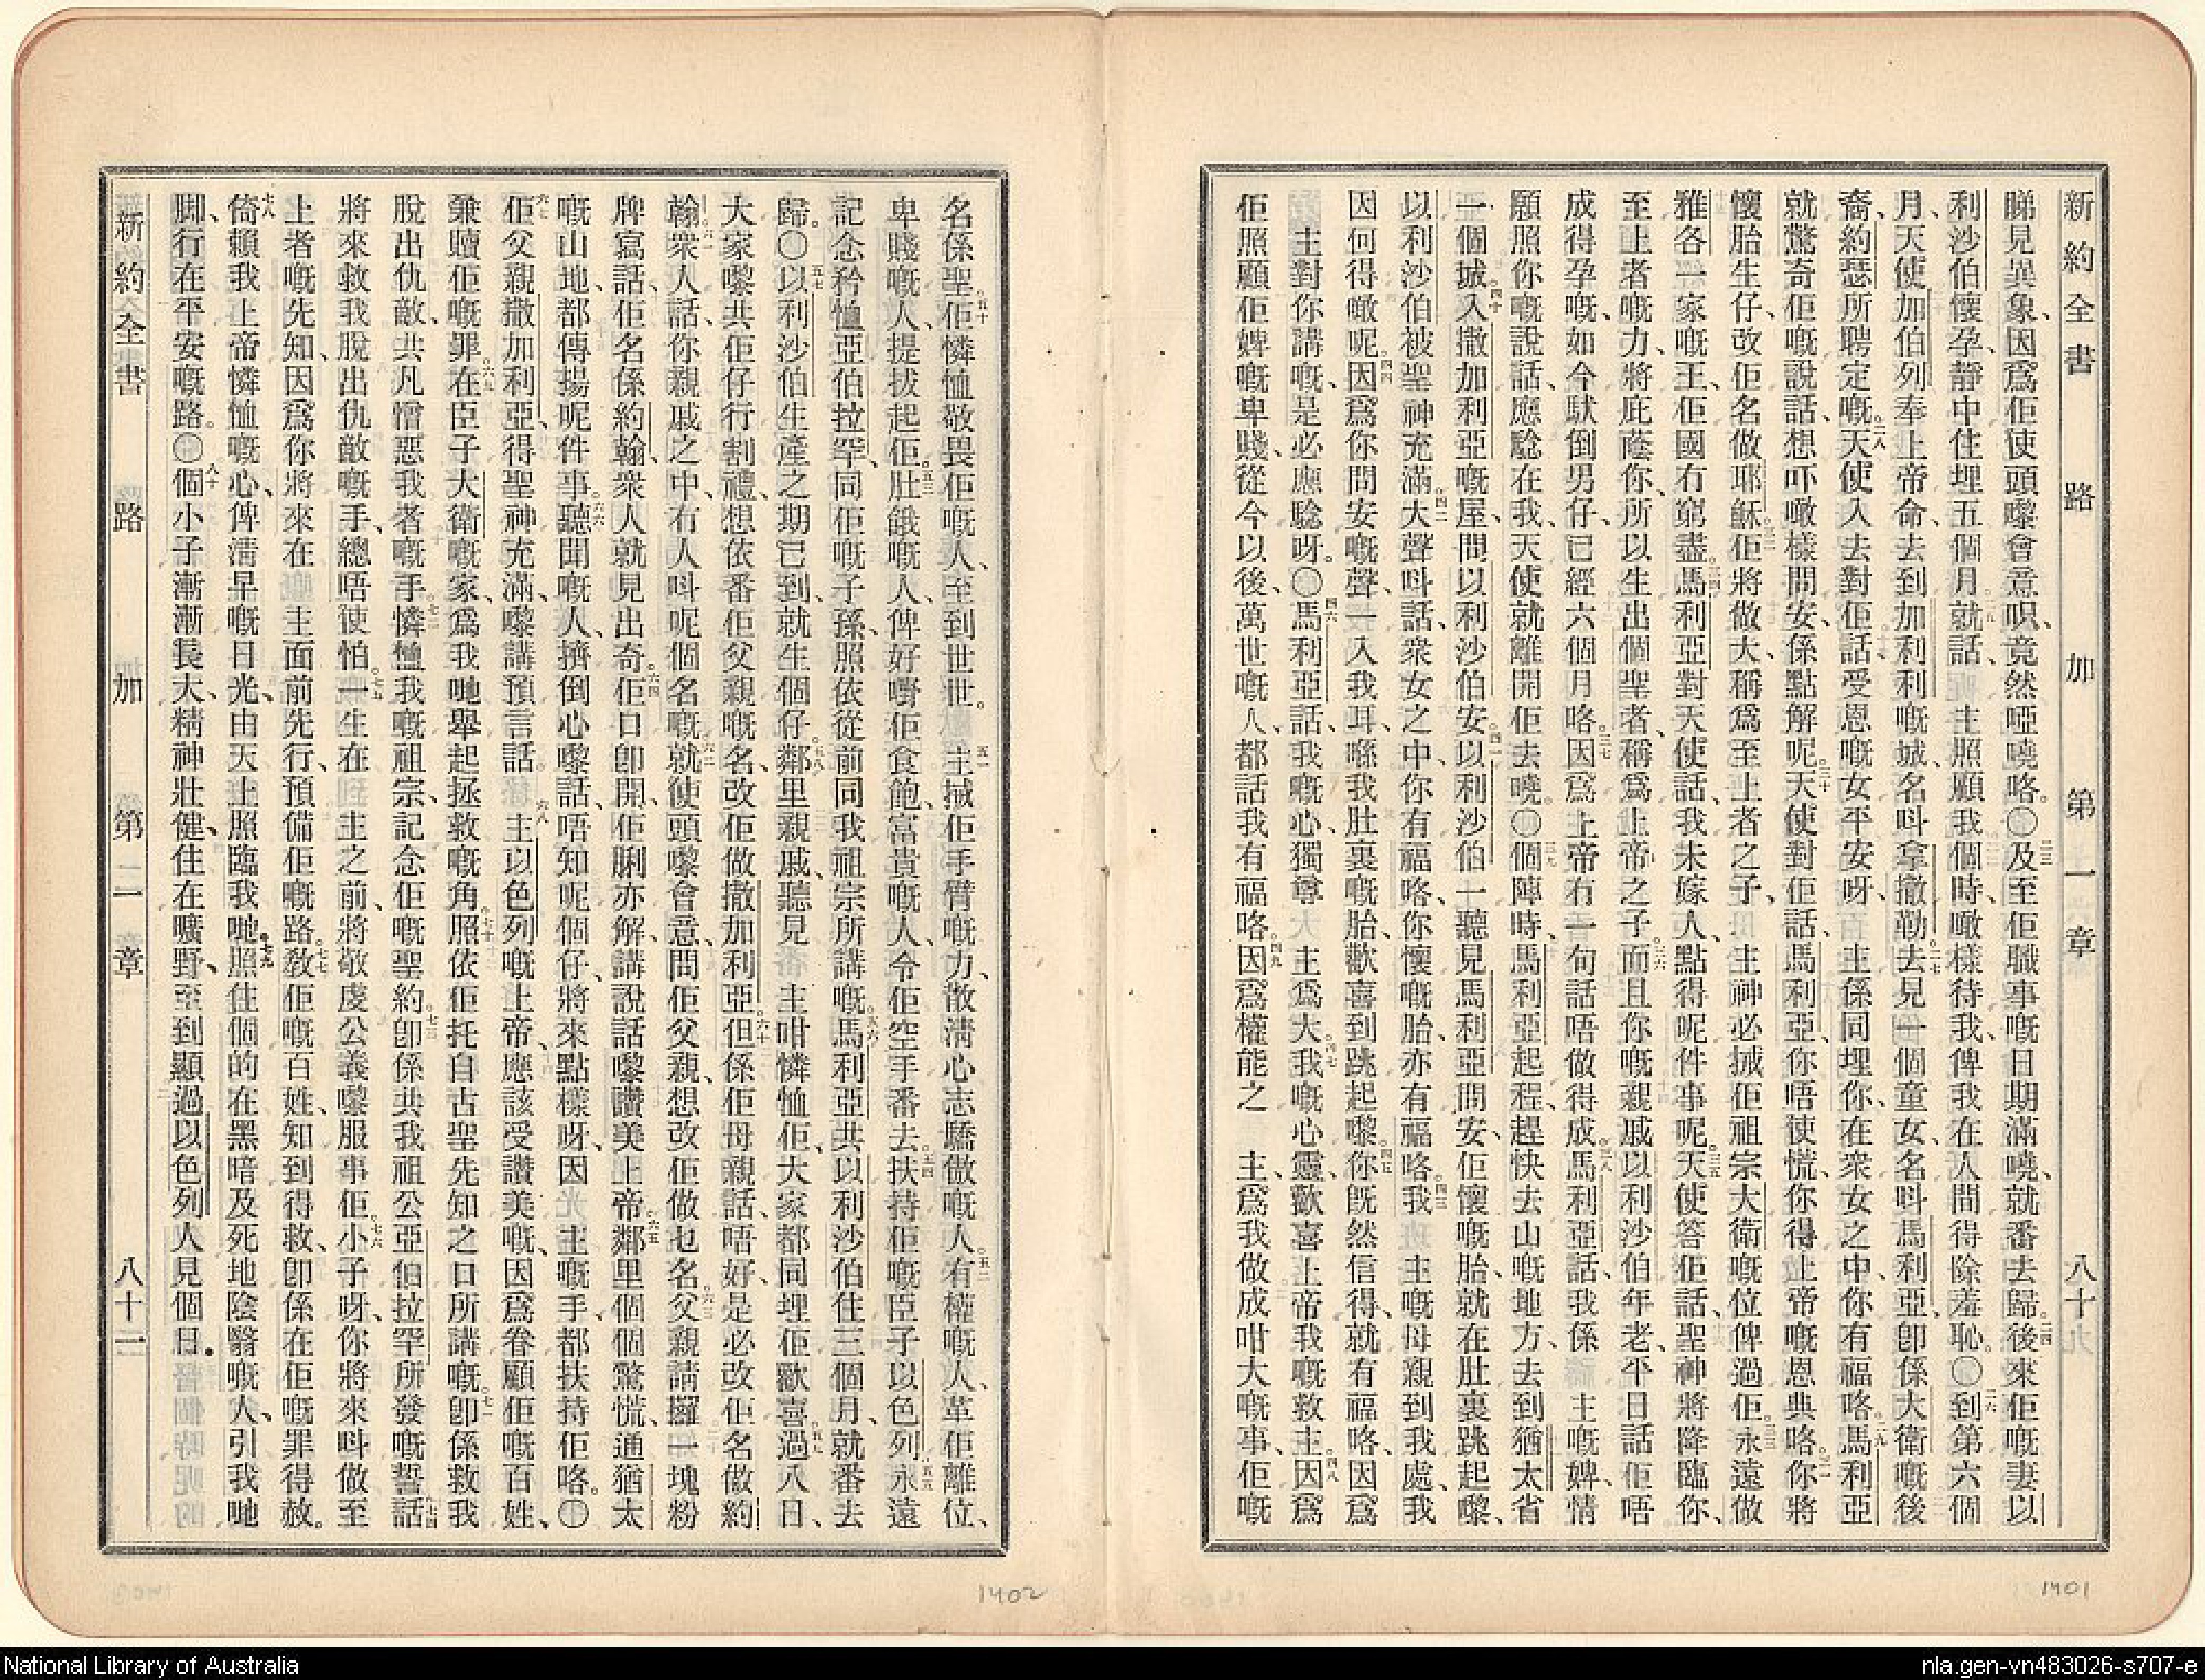 新約全書 路加 第一章 八十
睇見異象、因爲佢使頭嚟會意唄、竟然啞嘵咯。〇二三及至佢職事嘅日期滿嘵、就番去歸。二四後來佢嘅妻以
利沙伯懷孕、靜中住埋五個月、就話、二五主照顧我個時、噉樣待我、俾我在人間得除羞恥。〇二六到第六個
月、天使加伯列奉上帝命、去到加利利嘅城、名呌拿撒勒。二七去見一個童女、名呌馬利亞、卽係大衛嘅後
裔、約瑟所聘定嘅。二八天使入去對佢話、受恩嘅女平安呀、主係同埋你、在衆女之中、你有福咯。二九馬利亞
就驚奇佢嘅說話、想吓噉樣問安、係點解呢。三十天使對佢話、馬利亞、你唔使慌、你得上帝嘅恩典咯。三一你將
懷胎生仔、改佢名做耶穌。三二佢將做大、稱爲至上者之子、主神必摵佢祖宗大衛嘅位俾過佢。三三永遠做
雅各一家嘅王、佢國冇窮盡。三四馬利亞對天使話、我未嫁人、點得呢件事呢。三五天使答佢話、聖神將降臨你、
至上者嘅力、將庇蔭你、所以生出個聖者、稱爲上帝之子。三六而且你嘅親戚以利沙伯年老、平日話佢唔
成得孕嘅、如今馱倒男仔、已經六個月咯。三七因爲上帝冇一句話唔做得成。三八馬利亞話、我係主嘅婢、情
願照你嘅說話、應騐在我、天使就離開佢去嘵。〇三九個陣時、馬利亞起程、趕快去山嘅地方、去到猶太省
一個城。四十入撒加利亞嘅屋、問以利沙伯安。四一以利沙伯一聽見馬利亞問安、佢懷嘅胎、就在肚裏跳起嚟、
以利沙伯被聖神充滿。四二大聲呌話、衆女之中、你有福咯、你懷嘅胎、亦有福咯。四三我主嘅母親到我處、我
因何得噉呢。四四因爲你問安嘅聲、一入我耳、喺我肚裏嘅胎、歡喜到跳起嚟。四五你旣然信得、就有福咯、因爲
主對你講嘅、是必應騐呀。〇四六馬利亞話、我嘅心、獨尊主爲大。四七我嘅心靈、歡喜上帝我嘅救主。四八因爲
佢照顧佢婢嘅卑賤、從今以後、萬世嘅人、都話我有福咯。四九因爲權能之主、爲我做成咁大嘅事、佢嘅
名係聖。五十佢憐恤敬畏佢嘅人、至到世世。五一主摵佢手臂嘅力、散淸心志驕傲嘅人。五二有權嘅人、革佢離位、
卑賤嘅人、提拔起佢。五三肚餓嘅人、俾好嘢佢食飽、富貴嘅人、令佢空手番去。五四扶持佢嘅臣子以色列、五五永遠
記念矜恤亞伯拉罕、同佢嘅子孫、照依從前同我祖宗所講嘅。五六馬利亞共以利沙伯住三個月、就番去
歸。〇五七以利沙伯生產之期已到、就生個仔。五八鄰里親戚、聽見主咁憐恤佢、大家都同埋佢歡喜。五九過八日、
大家嚟共佢仔行割禮、想依番佢父親嘅名、改佢做撒加利亞。六十但係佢母親話、唔好、是必改佢名做約
翰。六一衆人話、你親戚之中、有人呌呢個名嘅。六二就使頭嚟會意、問佢父親、想改佢做乜名。六三父親請攞一塊粉
牌寫話、佢名係約翰、衆人就見出奇。六四佢口卽開、佢脷亦解、講說話嚟讚美上帝。六五鄰里個個驚慌、通猶太
嘅山地、都傳揚呢件事。六六聽聞嘅人、擠倒心嚟話、唔知呢個仔、將來點樣呀、因主嘅手、都扶持佢咯。〇
六七佢父親撒加利亞、得聖神充滿、嚟講預言話。六八主以色列嘅上帝、應該受讚美嘅、因爲眷顧佢嘅百姓、
兼贖佢嘅罪。六九在臣子大衛嘅家、爲我哋舉起拯救嘅角。七十照依佢托自古聖先知之口所講嘅。七一卽係救我
脫出仇敵、共凡憎惡我者嘅手。七二憐恤我嘅祖宗、記念佢嘅聖約。七三卽係共我祖公亞伯拉罕所發嘅誓話、七四
將來救我脫出仇敵嘅手、總唔使怕。七五一生在主之前、將敬虔公義嚟服事佢。七六小子呀、你將來呌做至
上者嘅先知、因爲你將來在主面前先行、預備佢嘅路。七七敎佢嘅百姓、知到得救、卽係在佢嘅罪得赦。
七八倚賴我上帝憐恤嘅心、俾淸早嘅日光、由天上照臨我哋。七九照住個的在黑暗及死地陰翳嘅人、引我哋
脚、行在平安嘅路。〇八十個小子漸漸長大、精神壯健、住在曠野、至到顯過以色列人見個日。
新約全書 路加 第一章 八十一
1402
1401
National Library of Australia
nla.gen-vn483026-s707-e